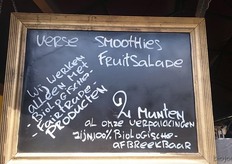 Verse Smoothies
Fruitsalade
Wij werken
alleen met
Biologische-
Fairtrade
Producten
2 Munten
al onze verpakkingen
zijn 100% Biologische-
afbreekbaar